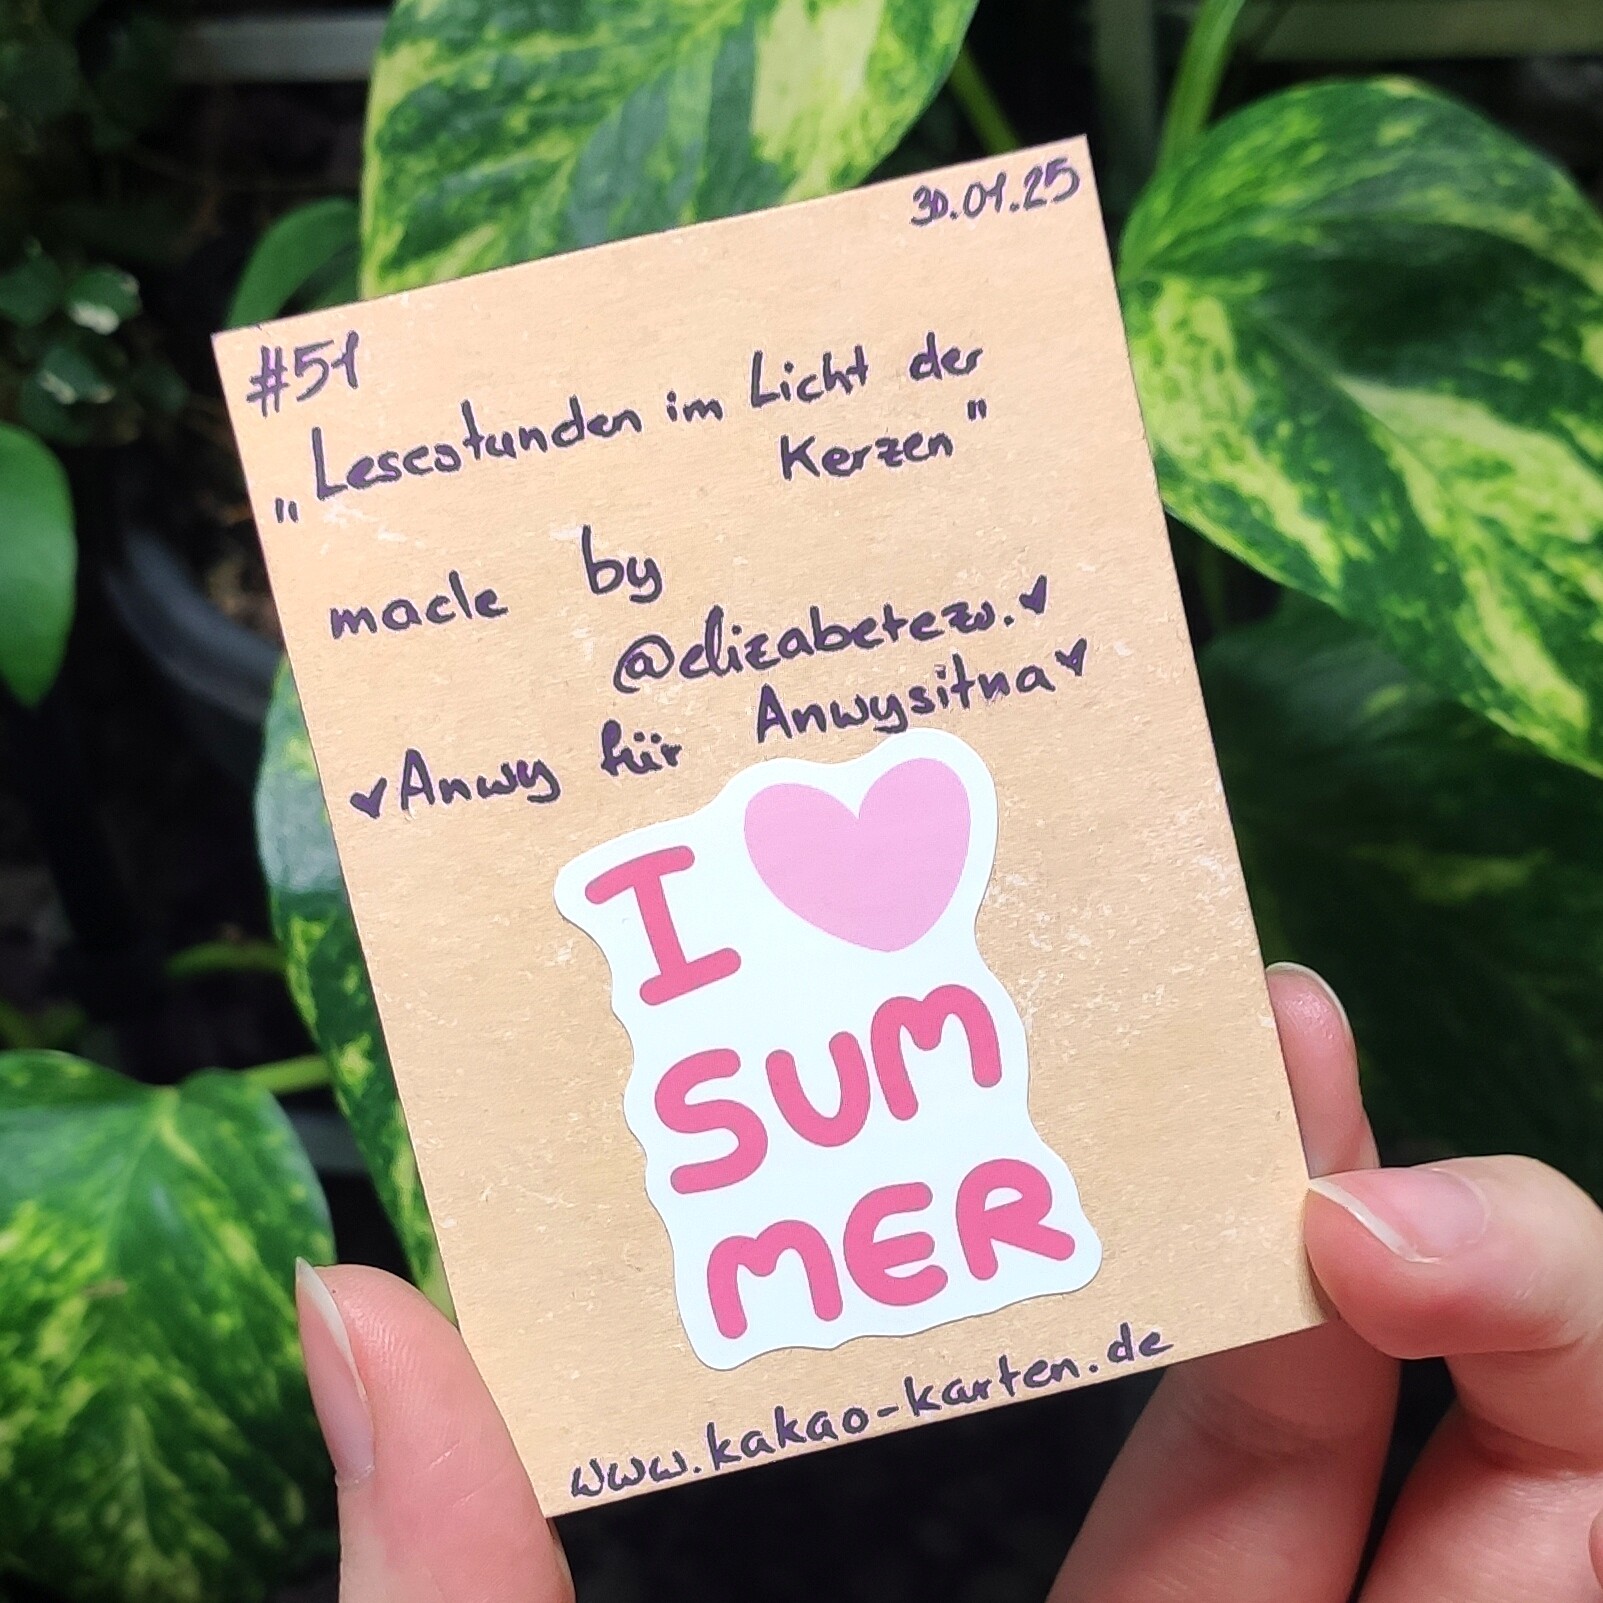 30.01.25
#51
„Lesestunden im Licht der
Kerzen"
made by
@elizabetezw.♥
♥Anwy für Anwysitna♥
I ♥
SUM
MER
www.kakao-karten.de